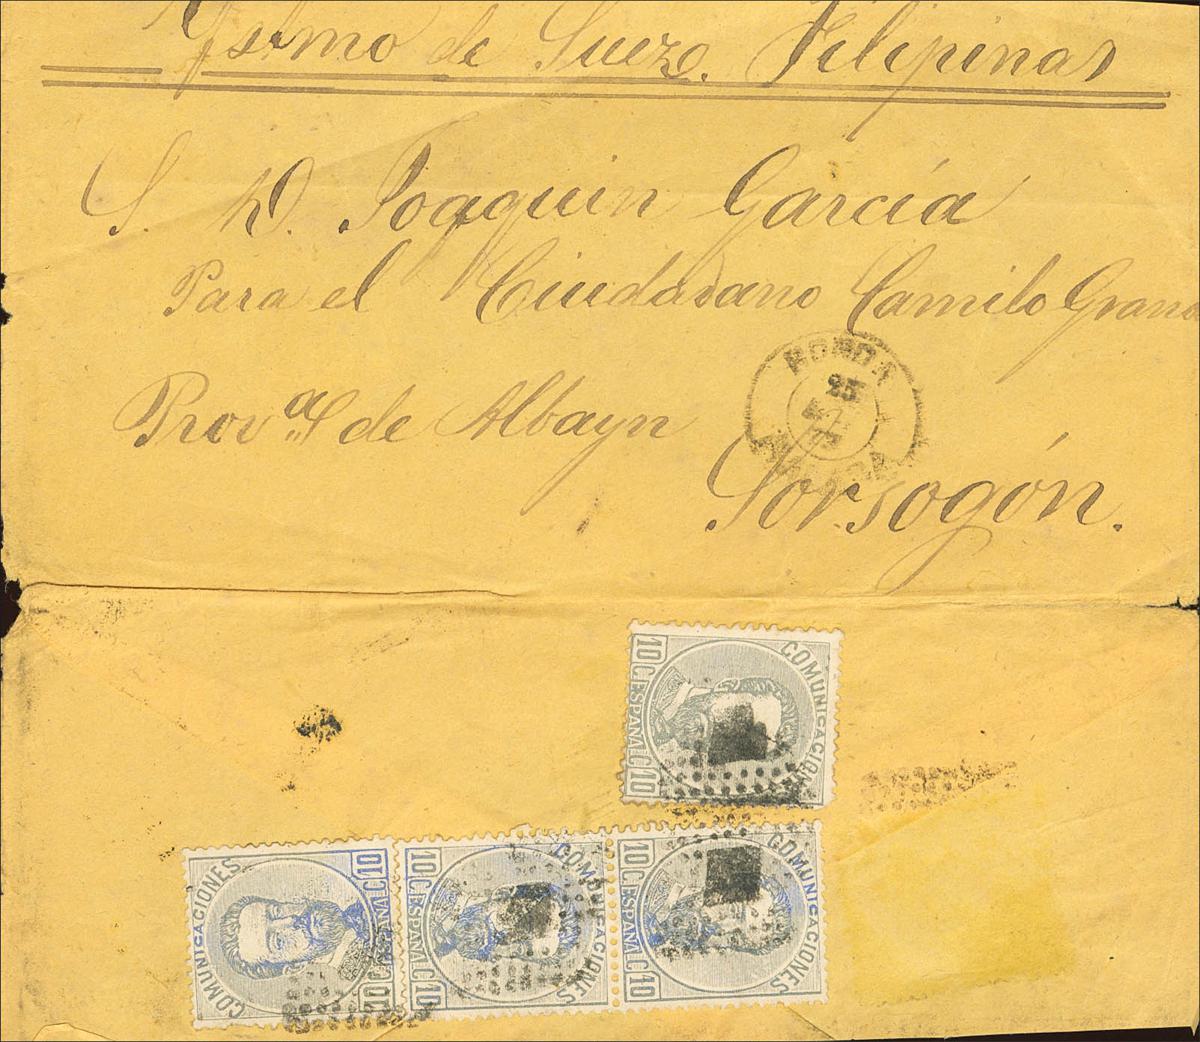 Ystmo de Suez. Filipinas
S. D. Joaquin García
Para el Ciudadano Camilo Grana
RONDA
25
Prov.ª de Albayn
Sorsogón.
COMUNICACIONES
10 C. ESPAÑA C. 10
COMUNICACIONES
10 C. ESPAÑA C. 10
COMUNICACIONES
10 C. ESPAÑA C. 10
COMUNICACIONES
10 C. ESPAÑA C. 10